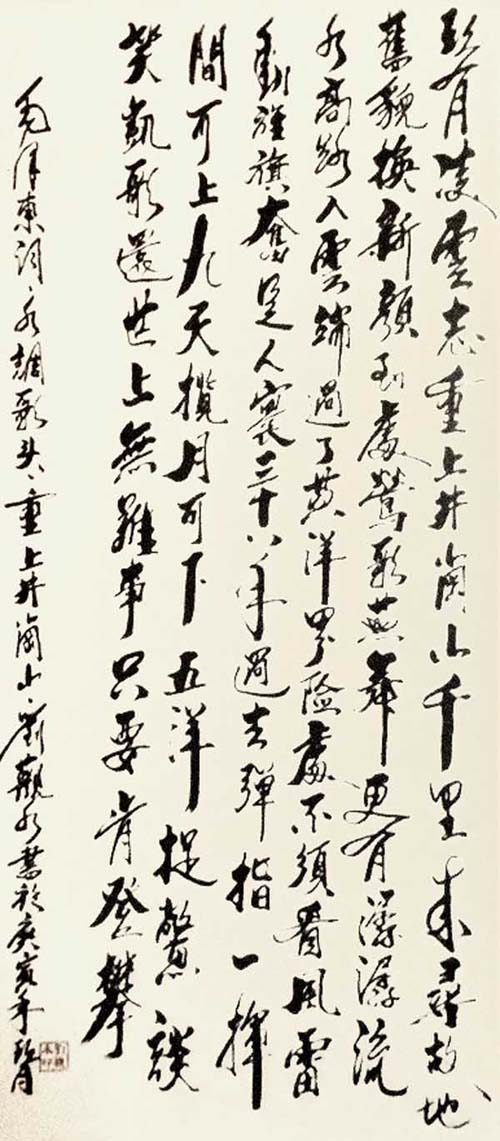 久有凌雲志重上井崗山千里來尋故地
舊貌換新顏到處鶯歌燕舞更有潺潺流
水高路入雲端過了黃洋界險處不須看風雷
動旌旗奮是人寰三十八年過去彈指一揮
間可上九天攬月可下五洋捉鱉談
笑凱歌還世上無難事只要肯登攀
毛澤東詞、水調歌头、重上井崗山、劉觀水書於年